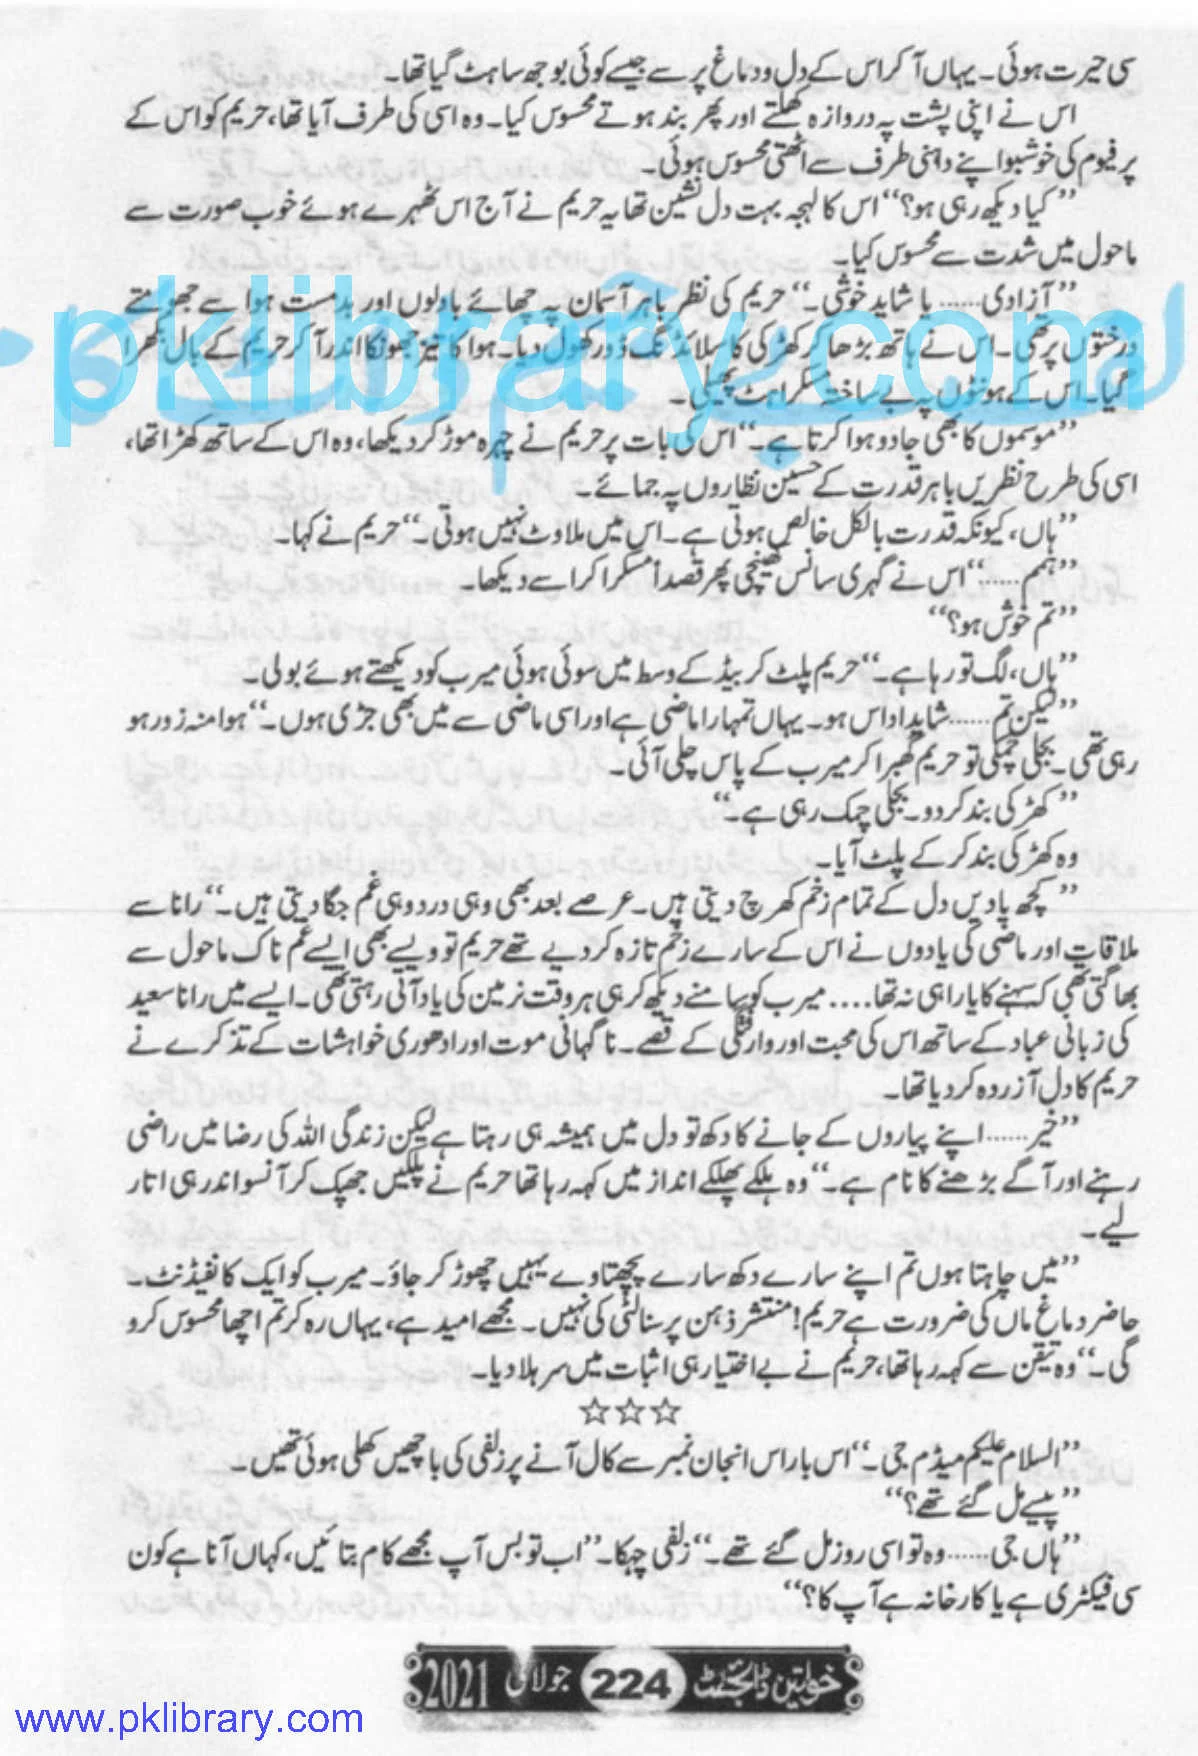 سی حیرت ہوئی۔ یہاں آ کر اس کے دل و دماغ پر سے جیسے کوئی بوجھ سا ہٹ گیا تھا۔
اس نے اپنی پشت پہ دروازہ کھلتے اور پھر بند ہوتے محسوس کیا۔ وہ اسی کی طرف آیا تھا، حریم کو اس کے
پرفیوم کی خوشبو اپنے داہنی طرف سے اٹھتی محسوس ہوئی۔
’’کیا دیکھ رہی ہو؟‘‘ اس کا لہجہ بہت دل نشین تھا یہ حریم نے آج اس ٹھہرے ہوئے خوب صورت سے
ماحول میں شدت سے محسوس کیا۔
’’آزادی...... یا شاید خوشی۔‘‘ حریم کی نظر باہر آسمان پہ چھائے بادلوں اور بدمست ہوا سے جھومتے
درختوں پر تھی۔ اس نے ہاتھ بڑھا کر کھڑکی کا سلائڈنگ ڈور کھول دیا۔ ہوا کا تیز جھونکا اندر آ کر حریم کے بال بکھرا
گیا۔ اس کے ہونٹوں پہ بے ساختہ مسکراہٹ پھیلی۔
’’موسموں کا بھی جادو ہوا کرتا ہے۔‘‘ اس کی بات پر حریم نے چہرہ موڑ کر دیکھا، وہ اس کے ساتھ کھڑا تھا،
اسی کی طرح نظریں باہر قدرت کے حسین نظاروں پہ جمائے۔
’’ہاں، کیونکہ قدرت بالکل خالص ہوتی ہے۔ اس میں ملاوٹ نہیں ہوتی۔‘‘ حریم نے کہا۔
’’ہمم......‘‘ اس نے گہری سانس کھینچی پھر قصداً مسکرا کر اسے دیکھا۔
’’تم خوش ہو؟‘‘
’’ہاں، لگ تو رہا ہے۔‘‘ حریم پلٹ کر بیڈ کے وسط میں سوئی ہوئی میرب کو دیکھتے ہوئے بولی۔
’’لیکن تم...... شاید اداس ہو۔ یہاں تمہارا ماضی ہے اور اسی ماضی سے میں بھی جڑی ہوں۔‘‘ ہوا منہ زور ہو
رہی تھی۔ بجلی چمکی تو حریم گھبرا کر میرب کے پاس چلی آئی۔
’’کھڑکی بند کر دو۔ بجلی چمک رہی ہے۔‘‘
وہ کھڑکی بند کر کے پلٹ آیا۔
’’کچھ یادیں دل کے تمام زخم کھرچ دیتی ہیں۔ عرصے بعد بھی وہی درد وہی غم جگا دیتی ہیں۔‘‘ رانا سے
ملاقات اور ماضی کی یادوں نے اس کے سارے زخم تازہ کر دیے تھے حریم تو ویسے بھی ایسے غم ناک ماحول سے
بھاگتی تھی کہ سہنے کا یارا ہی نہ تھا.... میرب کو سامنے دیکھ کر ہی ہر وقت نرمین کی یاد آتی رہتی تھی۔ ایسے میں رانا سعید
کی زبانی عباد کے ساتھ اس کی محبت اور وارفتگی کے قصے۔ ناگہانی موت اور ادھوری خواہشات کے تذکرے نے
حریم کا دل آزردہ کر دیا تھا۔
’’خیر...... اپنے پیاروں کے جانے کا دکھ تو دل میں ہمیشہ ہی رہتا ہے لیکن زندگی اللہ کی رضا میں راضی
رہنے اور آگے بڑھنے کا نام ہے۔‘‘ وہ ہلکے پھلکے انداز میں کہہ رہا تھا حریم نے پلکیں جھپک کر آنسو اندر ہی اتار
لیے۔
’’میں چاہتا ہوں تم اپنے سارے دکھ سارے پچھتاوے یہیں چھوڑ کر جاؤ۔ میرب کو ایک کانفیڈنٹ۔
حاضر دماغ ماں کی ضرورت ہے حریم! منتشر ذہن پرسنالٹی کی نہیں۔ مجھے امید ہے، یہاں رہ کر تم اچھا محسوس کرو
گی۔‘‘ وہ تیقن سے کہہ رہا تھا، حریم نے بے اختیار ہی اثبات میں سر ہلا دیا۔
☆☆☆
’’السلام علیکم میڈم جی۔‘‘ اس بار اس انجان نمبر سے کال آنے پر زلفی کی باچھیں کھلی ہوئی تھیں۔
’’پیسے مل گئے تھے؟‘‘
’’ہاں جی...... وہ تو اسی روز مل گئے تھے۔‘‘ زلفی چہکا۔ ’’اب تو بس آپ مجھے کام بتائیں، کہاں آنا ہے کون
سی فیکٹری ہے یا کارخانہ ہے آپ کا؟‘‘
خواتین ڈائجسٹ 224 جولائی 2021
pklibrary.com
www.pklibrary.com